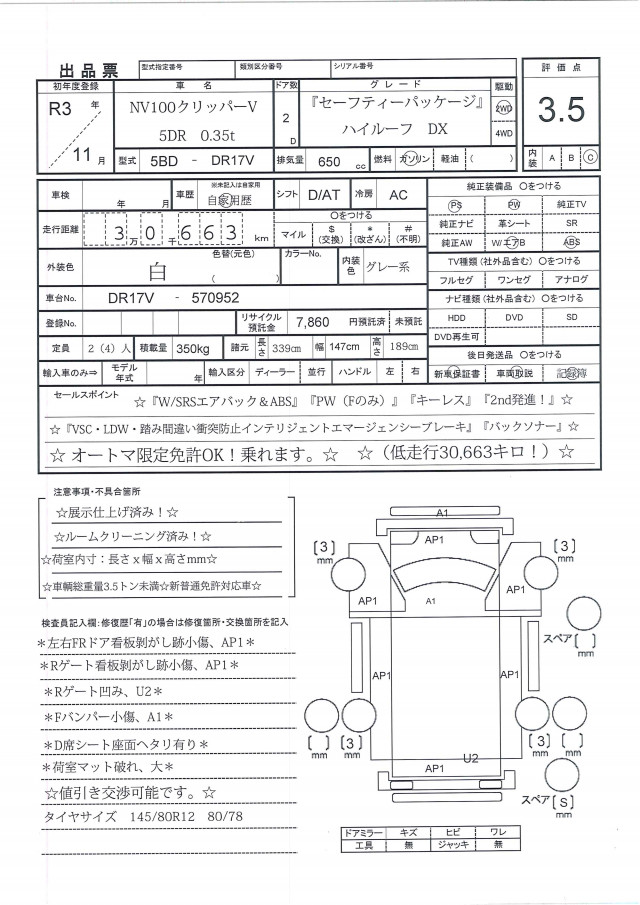 出品票
型式指定番号
類別区分番号
シリアル番号
初年度登録
R3 年
11 月
車 名
NV100クリッパーV
5DR 0.35t
ドア数
2
D
グレード
『セーフティーパッケージ』
ハイルーフ DX
駆動
2WD
4WD
評価点
3.5
型式 5BD - DR17V
排気量 650 cc
燃料 ガソリン 軽油 ( )
内装 A B C
車検 年 月
車歴 ※未記入は自家用
自家用歴
シフト D/AT
冷房 AC
純正装備品 〇をつける
PS PW 純正TV
純正ナビ 革シート SR
純正AW W/エアB ABS
走行距離 3万0千663 km
〇をつける
マイル $(交換) *(改ざん) #(不明)
外装色 白
色替(元色)
( )
カラーNo.
内装色 グレー系
TV種類(社外品含む) 〇をつける
フルセグ ワンセグ アナログ
ナビ種類(社外品含む) 〇をつける
HDD DVD SD
DVD再生可
車台No. DR17V - 570952
登録No.
リサイクル預託金 7,860 円預託済 未預託
定員 2(4)人 積載量 350kg 諸元 長さ 339cm 幅 147cm 高さ 189cm
後日発送品 〇をつける
新車保証書 車両取説 記録簿
輸入車のみ⇒ モデル年式 年 輸入区分 ディーラー 並行 ハンドル 左 右
セールスポイント ☆『W/SRSエアバック＆ABS』『PW（Fのみ）』『キーレス』『2nd発進！』☆
☆『VSC・LDW・踏み間違い衝突防止インテリジェントエマージェンシーブレーキ』『バックソナー』☆
☆ オートマ限定免許OK！乗れます。☆ ☆（低走行30,663キロ！）☆
注意事項・不具合箇所
☆展示仕上げ済み！☆
☆ルームクリーニング済み！☆
☆荷室内寸：長さｘ幅ｘ高さmm☆
☆車輌総重量3.5トン未満☆新普通免許対応車☆
検査員記入欄：修復歴「有」の場合は修復箇所・交換箇所を記入
＊左右FRドア看板剥がし跡小傷、AP1＊
＊Rゲート看板剥がし跡小傷、AP1＊
＊Rゲート凹み、U2＊
＊Fバンパー小傷、A1＊
＊D席シート座面ヘタリ有り＊
＊荷室マット破れ、大＊
☆値引き交渉可能です。☆
タイヤサイズ 145/80R12 80/78
A1
AP1
[3]
mm
[3]
mm
AP1
A1
AP1
スペア[ ]
mm
AP1
AP1
[ ]
mm
[3]
mm
[3]
mm
[ ]
mm
U2
AP1
スペア[S]
mm
ドアミラー キズ ヒビ ワレ
工具 無 ジャッキ 無